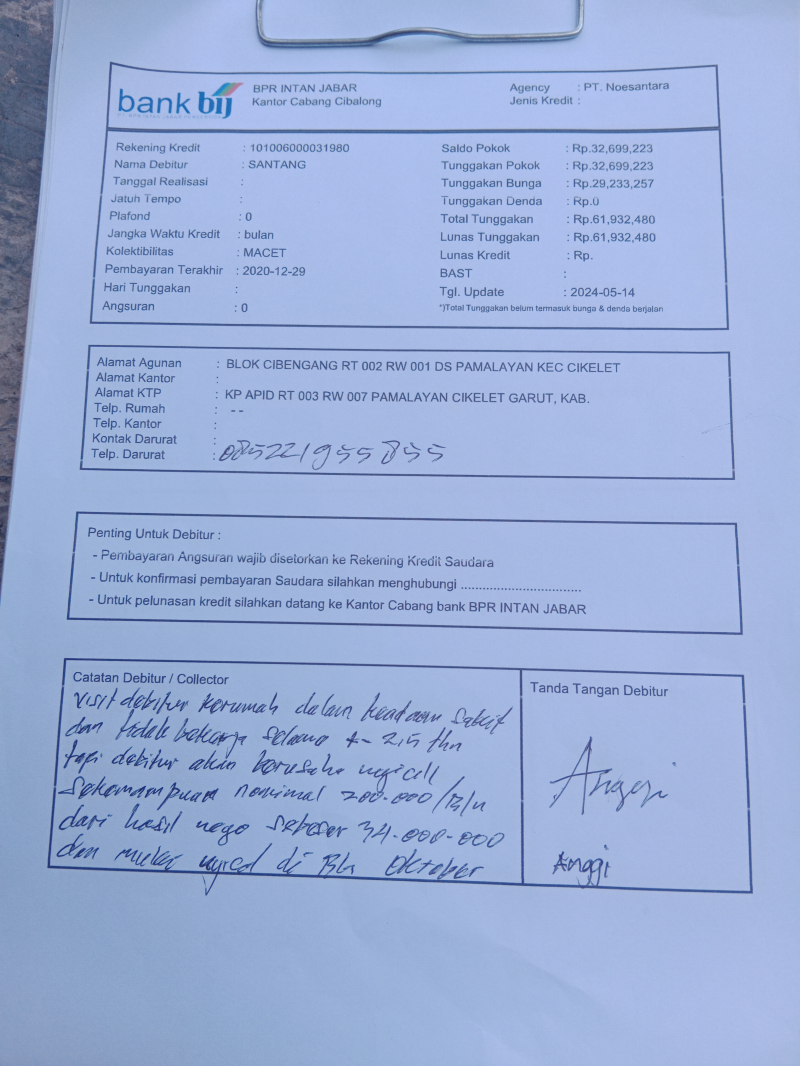 bank bij
BPR INTAN JABAR
Kantor Cabang Cibalong
Agency : PT. Noesantara
Jenis Kredit :
Rekening Kredit : 101006000031980
Nama Debitur : SANTANG
Tanggal Realisasi :
Jatuh Tempo :
Plafond : 0
Jangka Waktu Kredit : bulan
Kolektibilitas : MACET
Pembayaran Terakhir : 2020-12-29
Hari Tunggakan :
Angsuran : 0
Saldo Pokok : Rp.32,699,223
Tunggakan Pokok : Rp.32,699,223
Tunggakan Bunga : Rp.29,233,257
Tunggakan Denda : Rp.0
Total Tunggakan : Rp.61,932,480
Lunas Tunggakan : Rp.61,932,480
Lunas Kredit : Rp.
BAST :
Tgl. Update : 2024-05-14
*)Total Tunggakan belum termasuk bunga & denda berjalan
Alamat Agunan : BLOK CIBENGANG RT 002 RW 001 DS PAMALAYAN KEC CIKELET
Alamat Kantor :
Alamat KTP : KP APID RT 003 RW 007 PAMALAYAN CIKELET GARUT, KAB.
Telp. Rumah : --
Telp. Kantor :
Kontak Darurat :
Telp. Darurat : 085221955855
Penting Untuk Debitur :
- Pembayaran Angsuran wajib disetorkan ke Rekening Kredit Saudara
- Untuk konfirmasi pembayaran Saudara silahkan menghubungi ................................
- Untuk pelunasan kredit silahkan datang ke Kantor Cabang bank BPR INTAN JABAR
Catatan Debitur / Collector
visit debitur kerumah dalam keadaan sakit
dan tidak bekerja selama +- 2,5 thn
tapi debitur akan berusaha ngicil
sekemampuan nominal 200.000/bln
dari hasil nego sebesar 34.000.000
dan mulai di Bln Oktober
Tanda Tangan Debitur
Anggi
Anggi